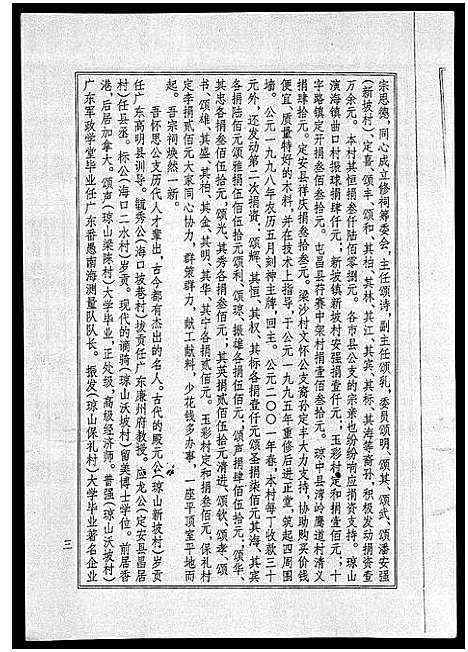 宗恩德，同心成立修祠筹委会，主任颂诗，副主任颂乳，委员颂明、颂其、颂武、颂潘安强
(新坡村)、定喜、颂丰、颂和、其柏、其林、其江、其宾、其标、其海等裔孙，积极发动捐资查
万余元。本村其恒捐叁仟陆佰零捌元。各市县公支的宗亲也纷纷响应捐资支持。琼山
演海镇曲口村振球捐肆仟元；新坡镇新坡村安强捐壹仟元；玉彩村定和捐壹佰元；十
字路镇定开捐叁佰叁拾元。屯昌县荇赛中架村捐壹佰叁拾元。琼中县湾岭鹰道村清义
捐肆拾元。定安县祥庆捐叁拾叁元。梁沙村文怀公支裔孙定丰大力支持，协助购买价钱
便宜、质量特好的木料，并在技术上指导，于公元一九九五年重修后进正堂，筑起四周围
墙。公元一九九八年农历五月刻神主牌，回主。公元二〇〇一年春，本村每丁收款三十
元外，还发动第二次捐资：颂辉、其恒、其权、其标各捐壹仟元颂圣捐柒佰元其海、其宾
各捐陆佰元颂雅捐伍佰伍拾元颂利、颂琼、振雄各捐伍佰元；颂声捐肆佰伍拾元、颂华、
其忠各捐叁佰伍拾元、颂光、其秀各捐叁佰元；其英捐贰佰伍拾元清进、颂钦、颂孝、颂
书、颂雄、其盛、其柏、其金、其明、其华、其宁各捐贰佰元。玉彩村定和捐叁佰元，保礼村
定李捐贰佰元大家同心协力，群策群力，献工献料，少花钱多办事，一座平顶室平地而
起。吾宗祠焕然一新。
吾怀恩公支历代人才辈出，古今都有杰出的名人。古代的殿元公(琼山新坡村)岁贡
任广东高明县训导。毓秀公(海口坡巷村)拔贡任广东廉州府教授。应龙公(定安县昌居
村)任县丞。标公(海口二水村)岁贡。现代的谪骑(琼山沃坡村)留美博士学位。前居香
港，后居加拿大。颂声(琼山梁陈村)大学毕业，正处级，高级经济师。普强(琼山沃坡村)
广东军政学堂毕业任广东番愚南海测量队队长。振发(琼山保礼村)大学毕业著名企业
三